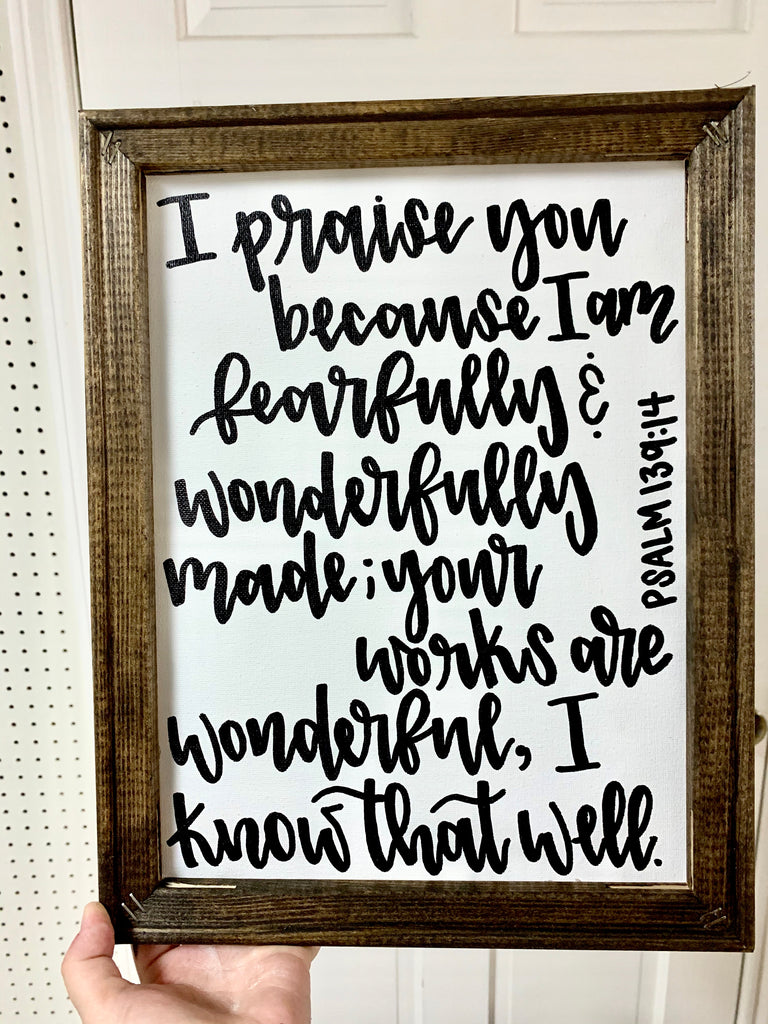 I praise you
because I am
fearfully &
wonderfully
made; your
works are
wonderful, I
know that well.
PSALM 139:14